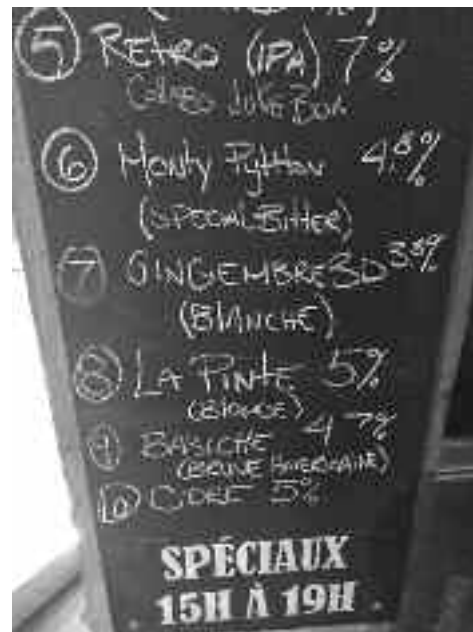 5 RETRO (IPA) 7%
COLLABO JUKEBOX
6 Monty Python 4.8%
(SPECIAL BITTER)
7 GINGEMBRE 3D
(BLANCHE)
8 LA PINTE 5%
(BLONDE)
9 BASOCHE 4.7%
(BRUNE AMERICAINE)
10 CIDRE 5%
SPÉCIAUX
15H À 19H